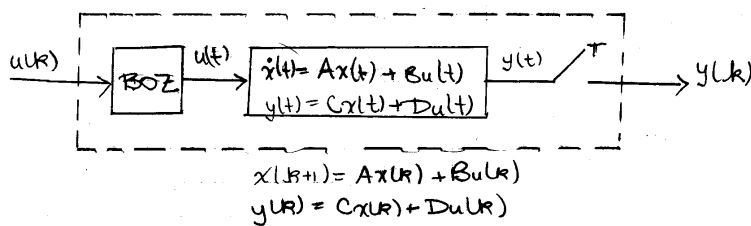 u(k)
BOZ
u(t)
ẋ(t) = Ax(t) + Bu(t)
y(t) = Cx(t) + Du(t)
y(t)
T
y(k)
x(k+1) = Ax(k) + Bu(k)
y(k) = Cx(k) + Du(k)